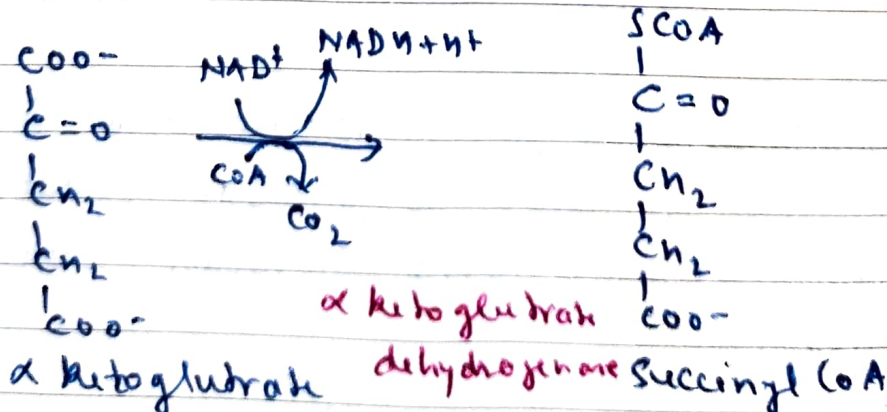 COO-
C=O
CH2
CH2
COO-
α ketoglutrate
NAD+ NADH+H+
CoA CO2
α ketoglutrate
dehydrogenase
SCOA
C=O
CH2
CH2
COO-
Succinyl CoA